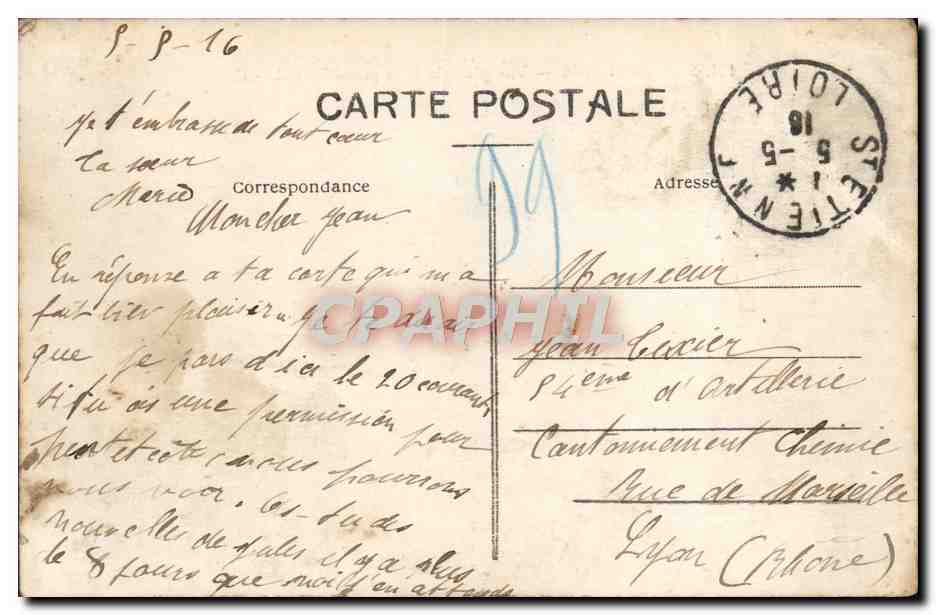 5-5-16
CARTE POSTALE
Je t'embrasse de tout cœur
ta sœur
Marie
Correspondance
Mon cher Jean
En réponse a ta carte qui m'a
fait bien plaisir Je te dirai
que je pars d'ici le 20 courant
si tu as une permission pour
peut et nous pourrons
nous voir. As-tu des
nouvelles de Jules il y a plus
de 8 jours que
99
ST ETIENNE
LOIRE
1 *
5 -5
16
Adresse
Monsieur
Jean Texier
54eme d'Artillerie
Cantonnement Chimie
Rue de Marseille
Lyon (Rhône)
CPAPHIL